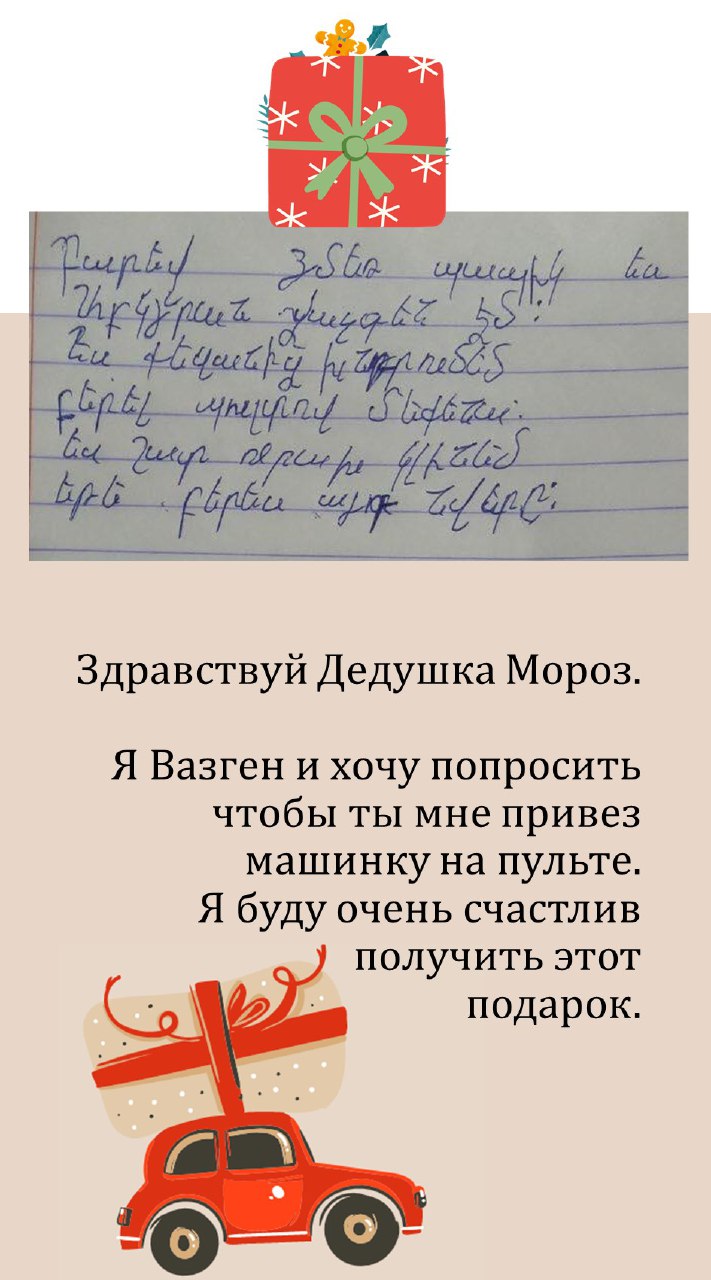 Բարեվ Ձմեռ պապիկ ես
Վազգեն եմ:
Ես քեզանից խնդրումեմ
բերել պուլտով մեքենա.
ես շատ ուրախ կլինեմ
եթե բերես այդ նվերը:
Здравствуй Дедушка Мороз.
Я Вазген и хочу попросить
чтобы ты мне привез
машинку на пульте.
Я буду очень счастлив
получить этот
подарок.